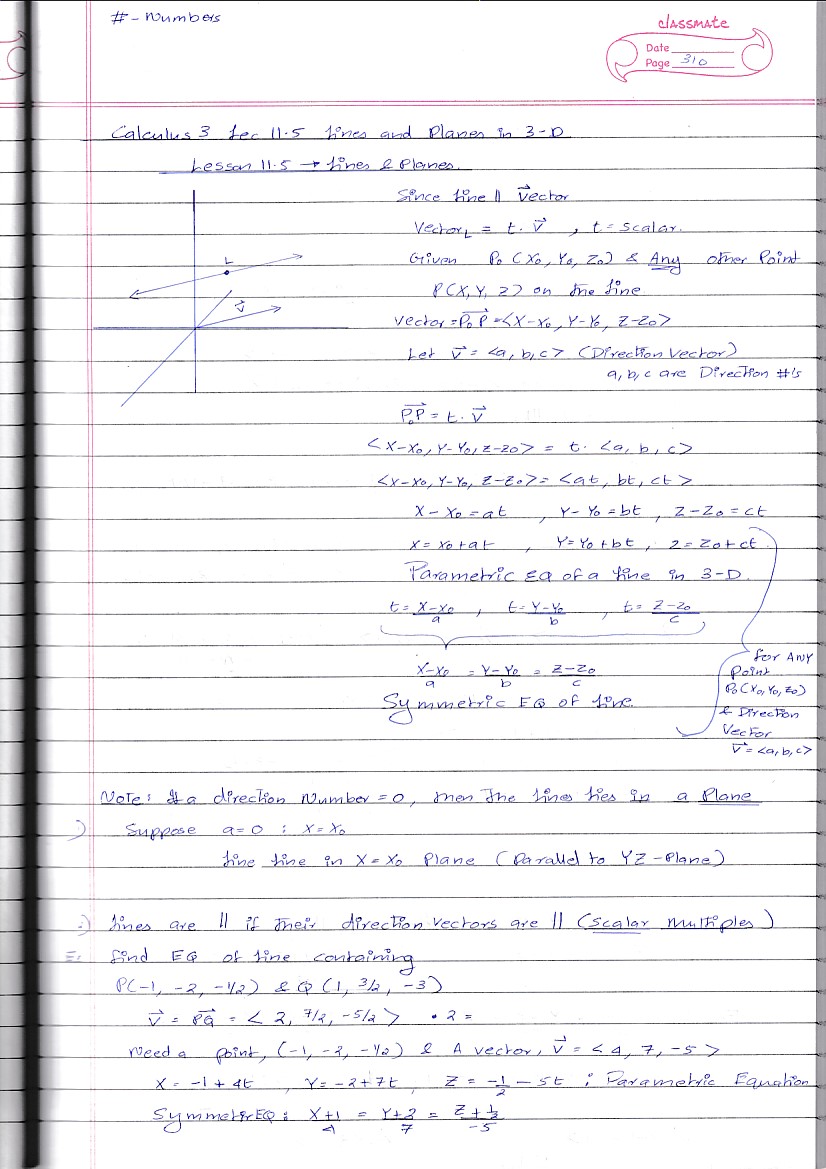 # - Numbers
classmate
Date
Page 310
Calculus 3 Lec 11.5 Lines and Planes in 3-D
Lesson 11.5 → Lines & Planes.
Since Line || V⃗ector
Vector_L = t. V⃗ , t = scalar.
L
Given P₀ (X₀, Y₀, Z₀) & Any other Point
P(X, Y, Z) on the line
V⃗
Vector = P₀P⃗ = <X-X₀, Y-Y₀, Z-Z₀>
Let V⃗ = <a, b, c> (Direction Vector)
a, b, c are Direction #'s
P₀P⃗ = t. V⃗
<X-X₀, Y-Y₀, Z-Z₀> = t. <a, b, c>
<X-X₀, Y-Y₀, Z-Z₀> = <at, bt, ct>
X-X₀ = at , Y-Y₀ = bt , Z-Z₀ = ct
X = X₀ + at , Y = Y₀ + bt , Z = Z₀ + ct
Parametric EQ of a line in 3-D.
t = X-X₀/a , t = Y-Y₀/b , t = Z-Z₀/c
X-X₀/a = Y-Y₀/b = Z-Z₀/c
Symmetric EQ of line
for ANY
Point
P₀(X₀, Y₀, Z₀)
& Direction
Vector
V⃗ = <a, b, c>
Note: If a direction Number = 0, then The lines lies in a Plane
:) Suppose a = 0 : X = X₀
Line line in X = X₀ Plane (Parallel to YZ-Plane)
:) Lines are || if Their direction vectors are || (Scalar multiples)
E: find EQ of line containing
P(-1, -2, -1/2) & Q (1, 3/2, -3)
V⃗ = PQ⃗ = < 2, 7/2, -5/2 > • 2 =
Need a point, (-1, -2, -1/2) & A vector, V⃗ = < 4, 7, -5 >
X = -1 + 4t , Y = -2 + 7t , Z = -1/2 - 5t : Parametric Equation
Symmetric EQ : X+1/4 = Y+2/7 = Z+1/2/-5